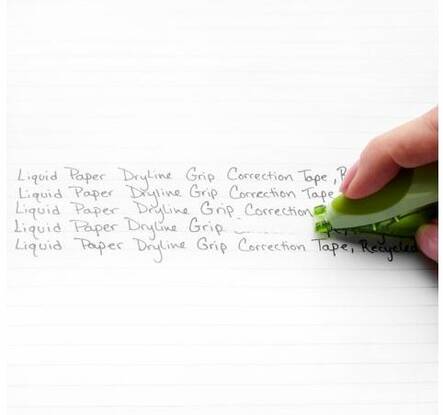 Liquid Paper Dryline Grip Correction Tape,
Liquid Paper Dryline Grip Correction Tape
Liquid Paper Dryline Grip Correction
Liquid Paper Dryline Grip Tape,
Liquid Paper Dryline Grip Correction Tape, Recycled